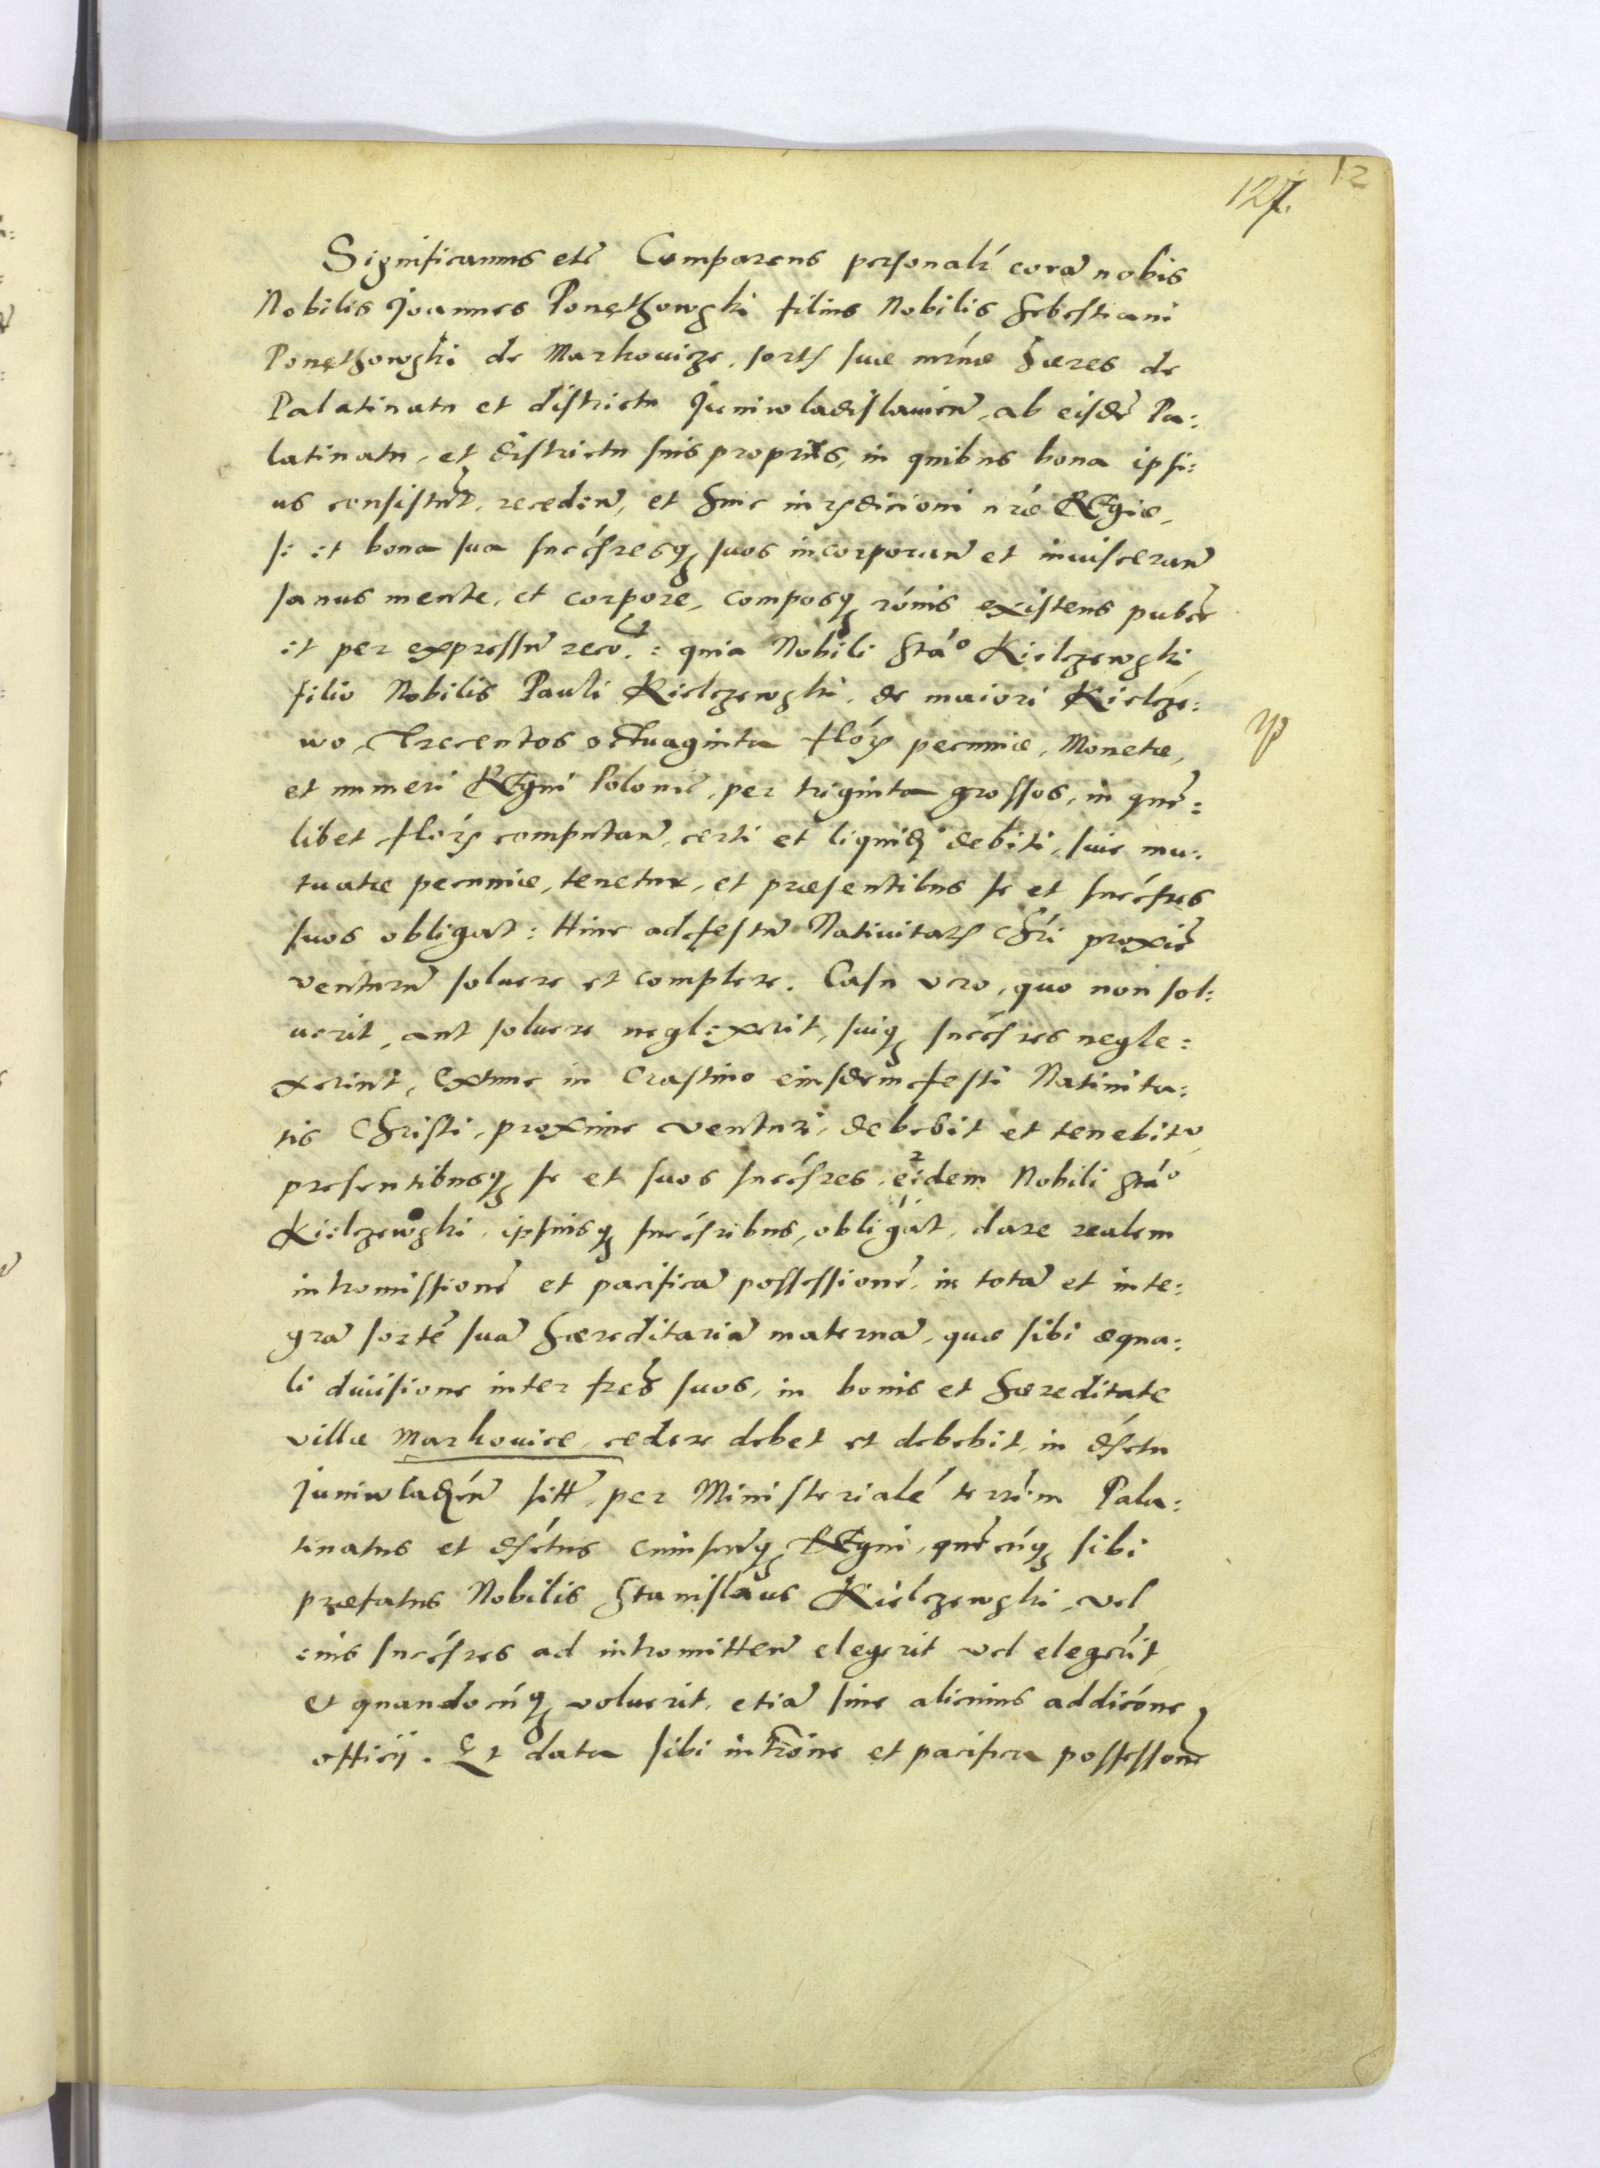 12
127.
Significamus etc̃ Comparens personalr̃ corã nobis
Nobilis Joannes Ponęthowski filius Nobilis Sebestiani
Ponęthowski de Markouicze, sortis suæ mr̃næ hæres de
Palatinatu et districtu Juniwladislauien̄, ab eisdẽ Pa:
latinatu, et districtu suis proprijs, in quibus bona ipsi:
us consistun̄t, recedeñ, et huic iurisdicioni nr̃æ Regiæ,
se et bona sua succ̃sresq̃ suos incorporan̄ et inuisceran̄
sanus mente, et corpore, composq̃ rõnis existens publce
et per expressũ reco: quia Nobili Stão Kielczewski
filio Nobilis Pauli Kielczewski, de maiori Kielcze:
wo, Trecentos octuaginta flor̃ pecuniæ, Monetæ,
et numeri Regni Poloniẽ, per triginta grossos, in quẽ:
libet flor̃ computan̄, certi et liquidi debiti, siue mu:
tuatæ pecuniæ, tenetur, et præsentibus se et succ̃sres
suos obligat: Hinc ad festũ Natiuitatis Chr̃i proxiẽ
venturũ soluere et complere. Casu vero, quo non sol:
uerit, aut soluere neglexerit, suiq̃ succ̃sres negle:
xerint, extunc in crastino eiusdem festi Natiuita:
tis Christi, proxime venturi, debebit et tenebitur
presentibusq̃ se et suos succ̃sres, eidem Nobili Stão
Kielczewski, ipsiusq̃ succ̃sribus, obligat, dare realem
intromissionẽ et pacificã possessionẽ, in totã et inte:
grã sortẽ suã hæreditariã maternã, quæ sibi æqua:
li diuisione inter fr̃es suos, in bonis et hæreditate
villæ Markouice, cedere debet et debebit, in dsctu
Juniwladien̄ sitt̃, per Ministerialẽ terr̃em Pala:
tinatus et dsctus cuiuscunq̃ Regni, quẽcũq̃ sibi
præfatus Nobilis Stanislaus Kielczewski, vel
eius succ̃sres ad intromitten̄ elegerit vel elegerit̃,
et quandocũq̃ voluerit, etiã sine alicuius addicõne
officij. Et data sibi intr̃õne et pacifica possessione